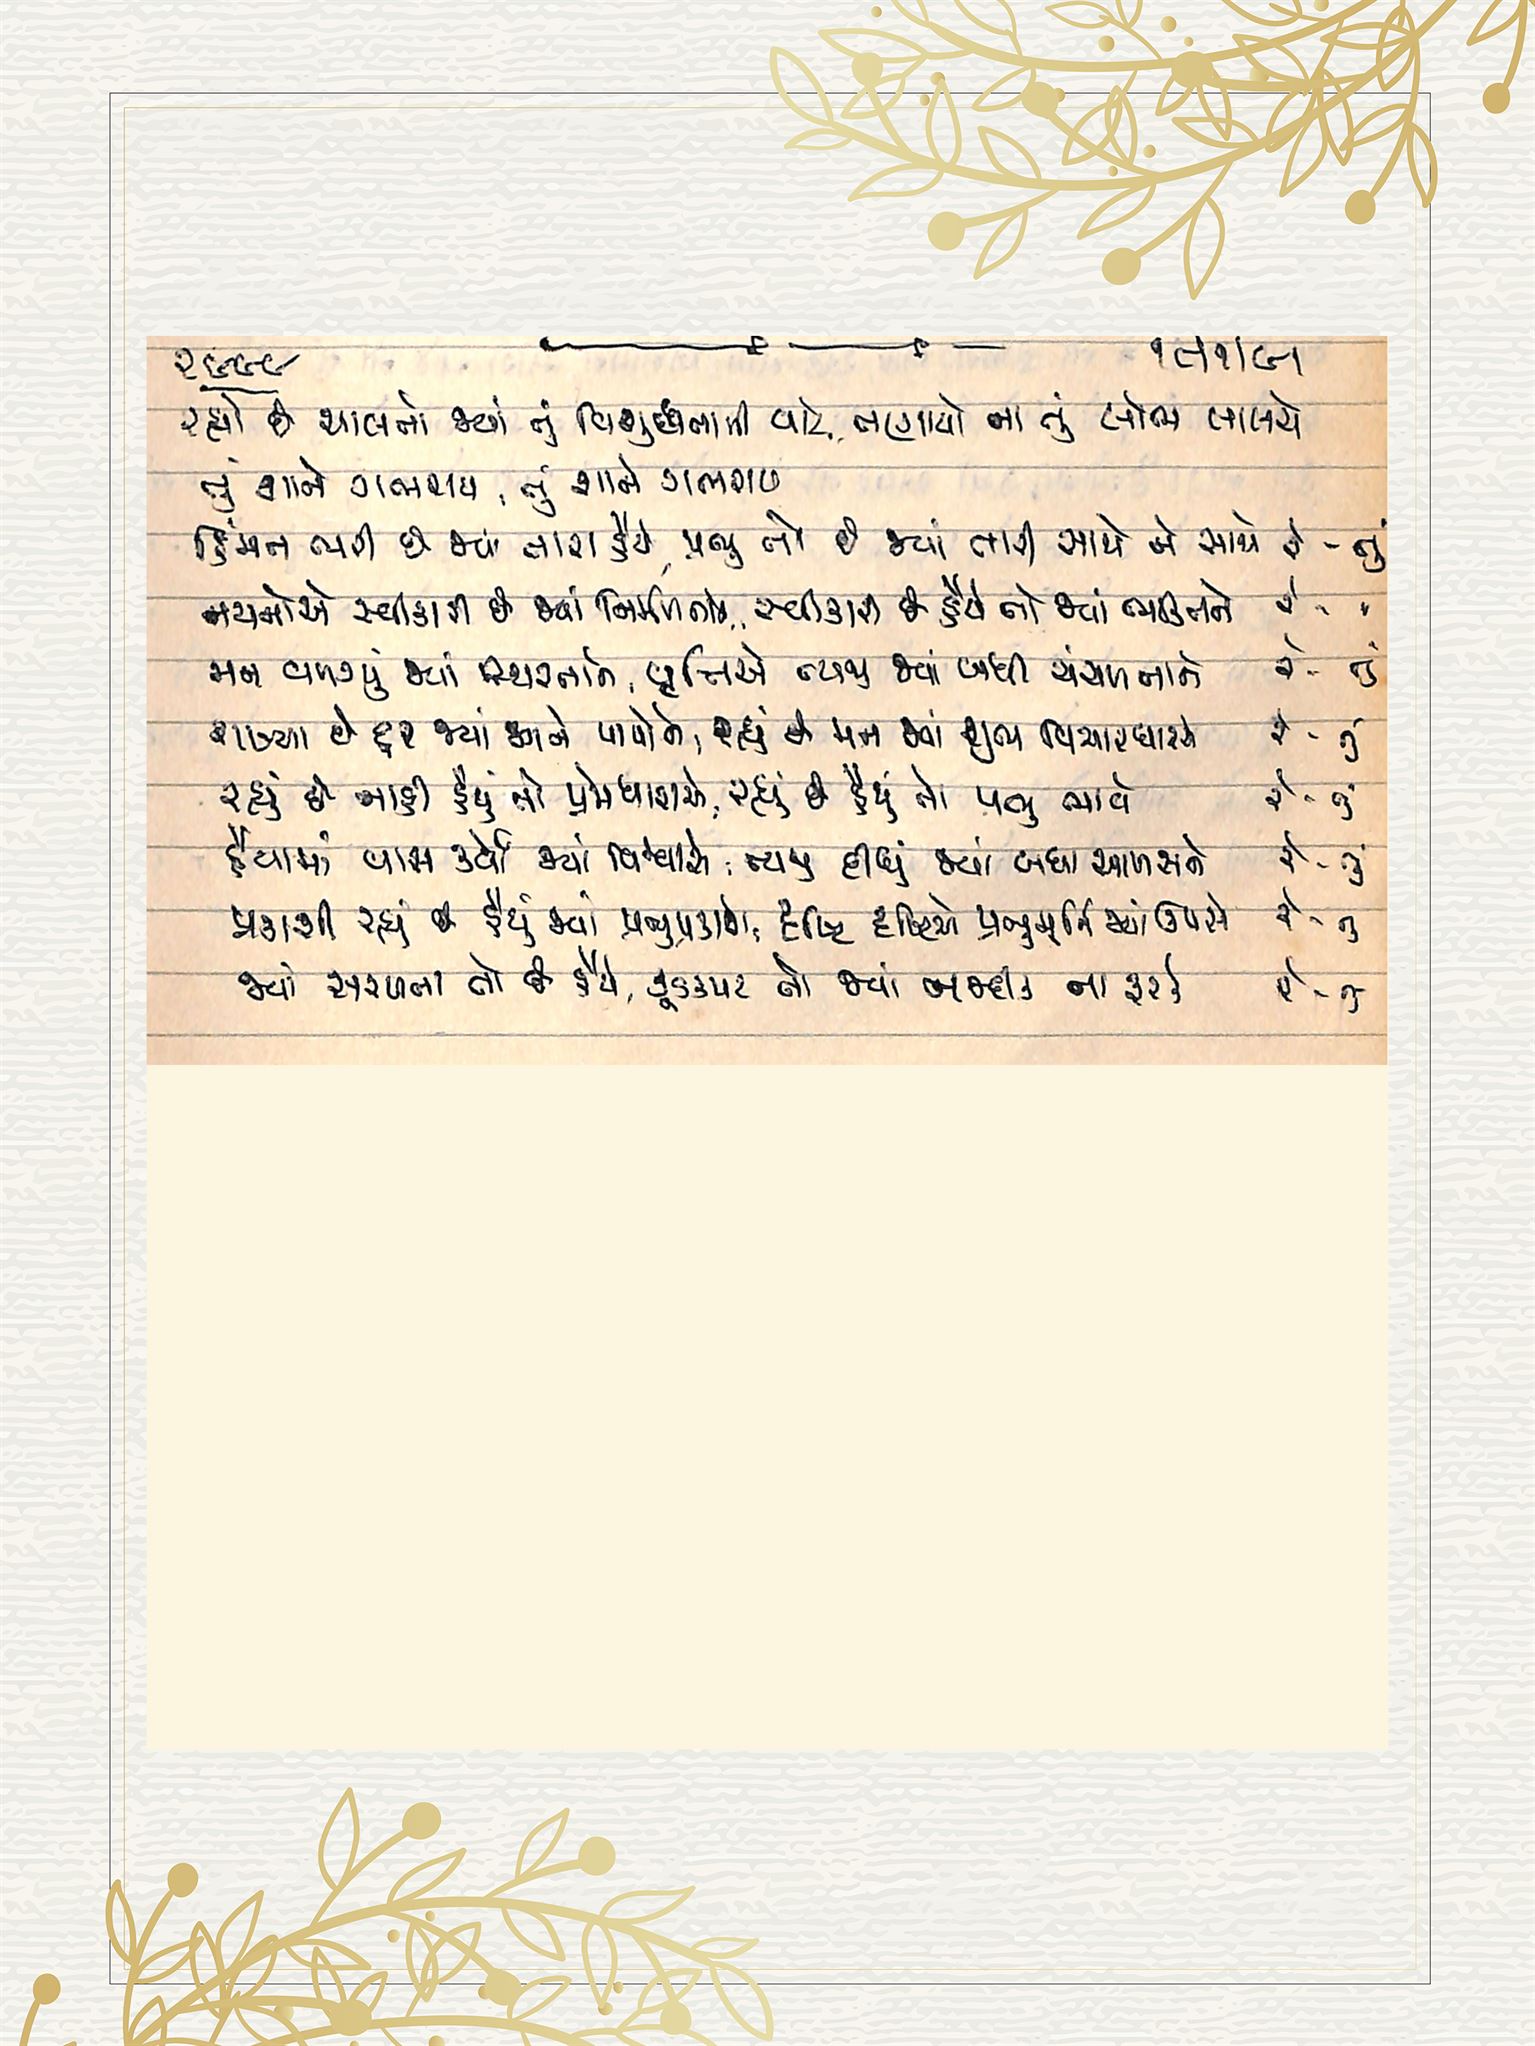 રહ્યો છે ચાલતો જ્યાં તું વિશુદ્ધતાની વાટે, તણાયો ના તું લોભ લાલચે
તું શાને ગભરાય, તું શાને ગભરાય
હિંમત ભરી છે જ્યાં તારા હૈયે, પ્રભુ તો છે જ્યાં તારી સાથે ને સાથે રે - તું
નયનોએ સ્વીકારી છે જ્યાં નિર્મળતા, સ્વીકારી છે હૈયે તો જ્યાં ભક્તિને રે - "
મન વળગ્યું જ્યાં સ્થિરતાને, વૃત્તિએ ત્યજી જ્યાં બધી ચંચળતાને રે - તું
રાખ્યા છે દૂર જ્યાં પાપોને, રહ્યું છે મન જ્યાં શુભ વિચારધારાએ રે - તું
રહ્યું છે નાહી હૈયું તો પ્રેમધારાએ, રહ્યું છે હૈયું તો પ્રભુ ભાવે રે - તું
હૈયામાં વાસ કર્યો જ્યાં વિશ્વાસે, ત્યજી દીધું જ્યાં બધા આળસને રે - તું
પ્રકાશી રહ્યું છે હૈયું જ્યાં પ્રભુપ્રકાશે, દૃષ્ટિ દૃષ્ટિએ પ્રભુમૂર્તિ જ્યાં ઉપસે રે - તું
જ્યાં સરળતા તો છે હૈયે, કૂડકપટ તો જ્યાં નજદીક ના ફરકે રે - તું